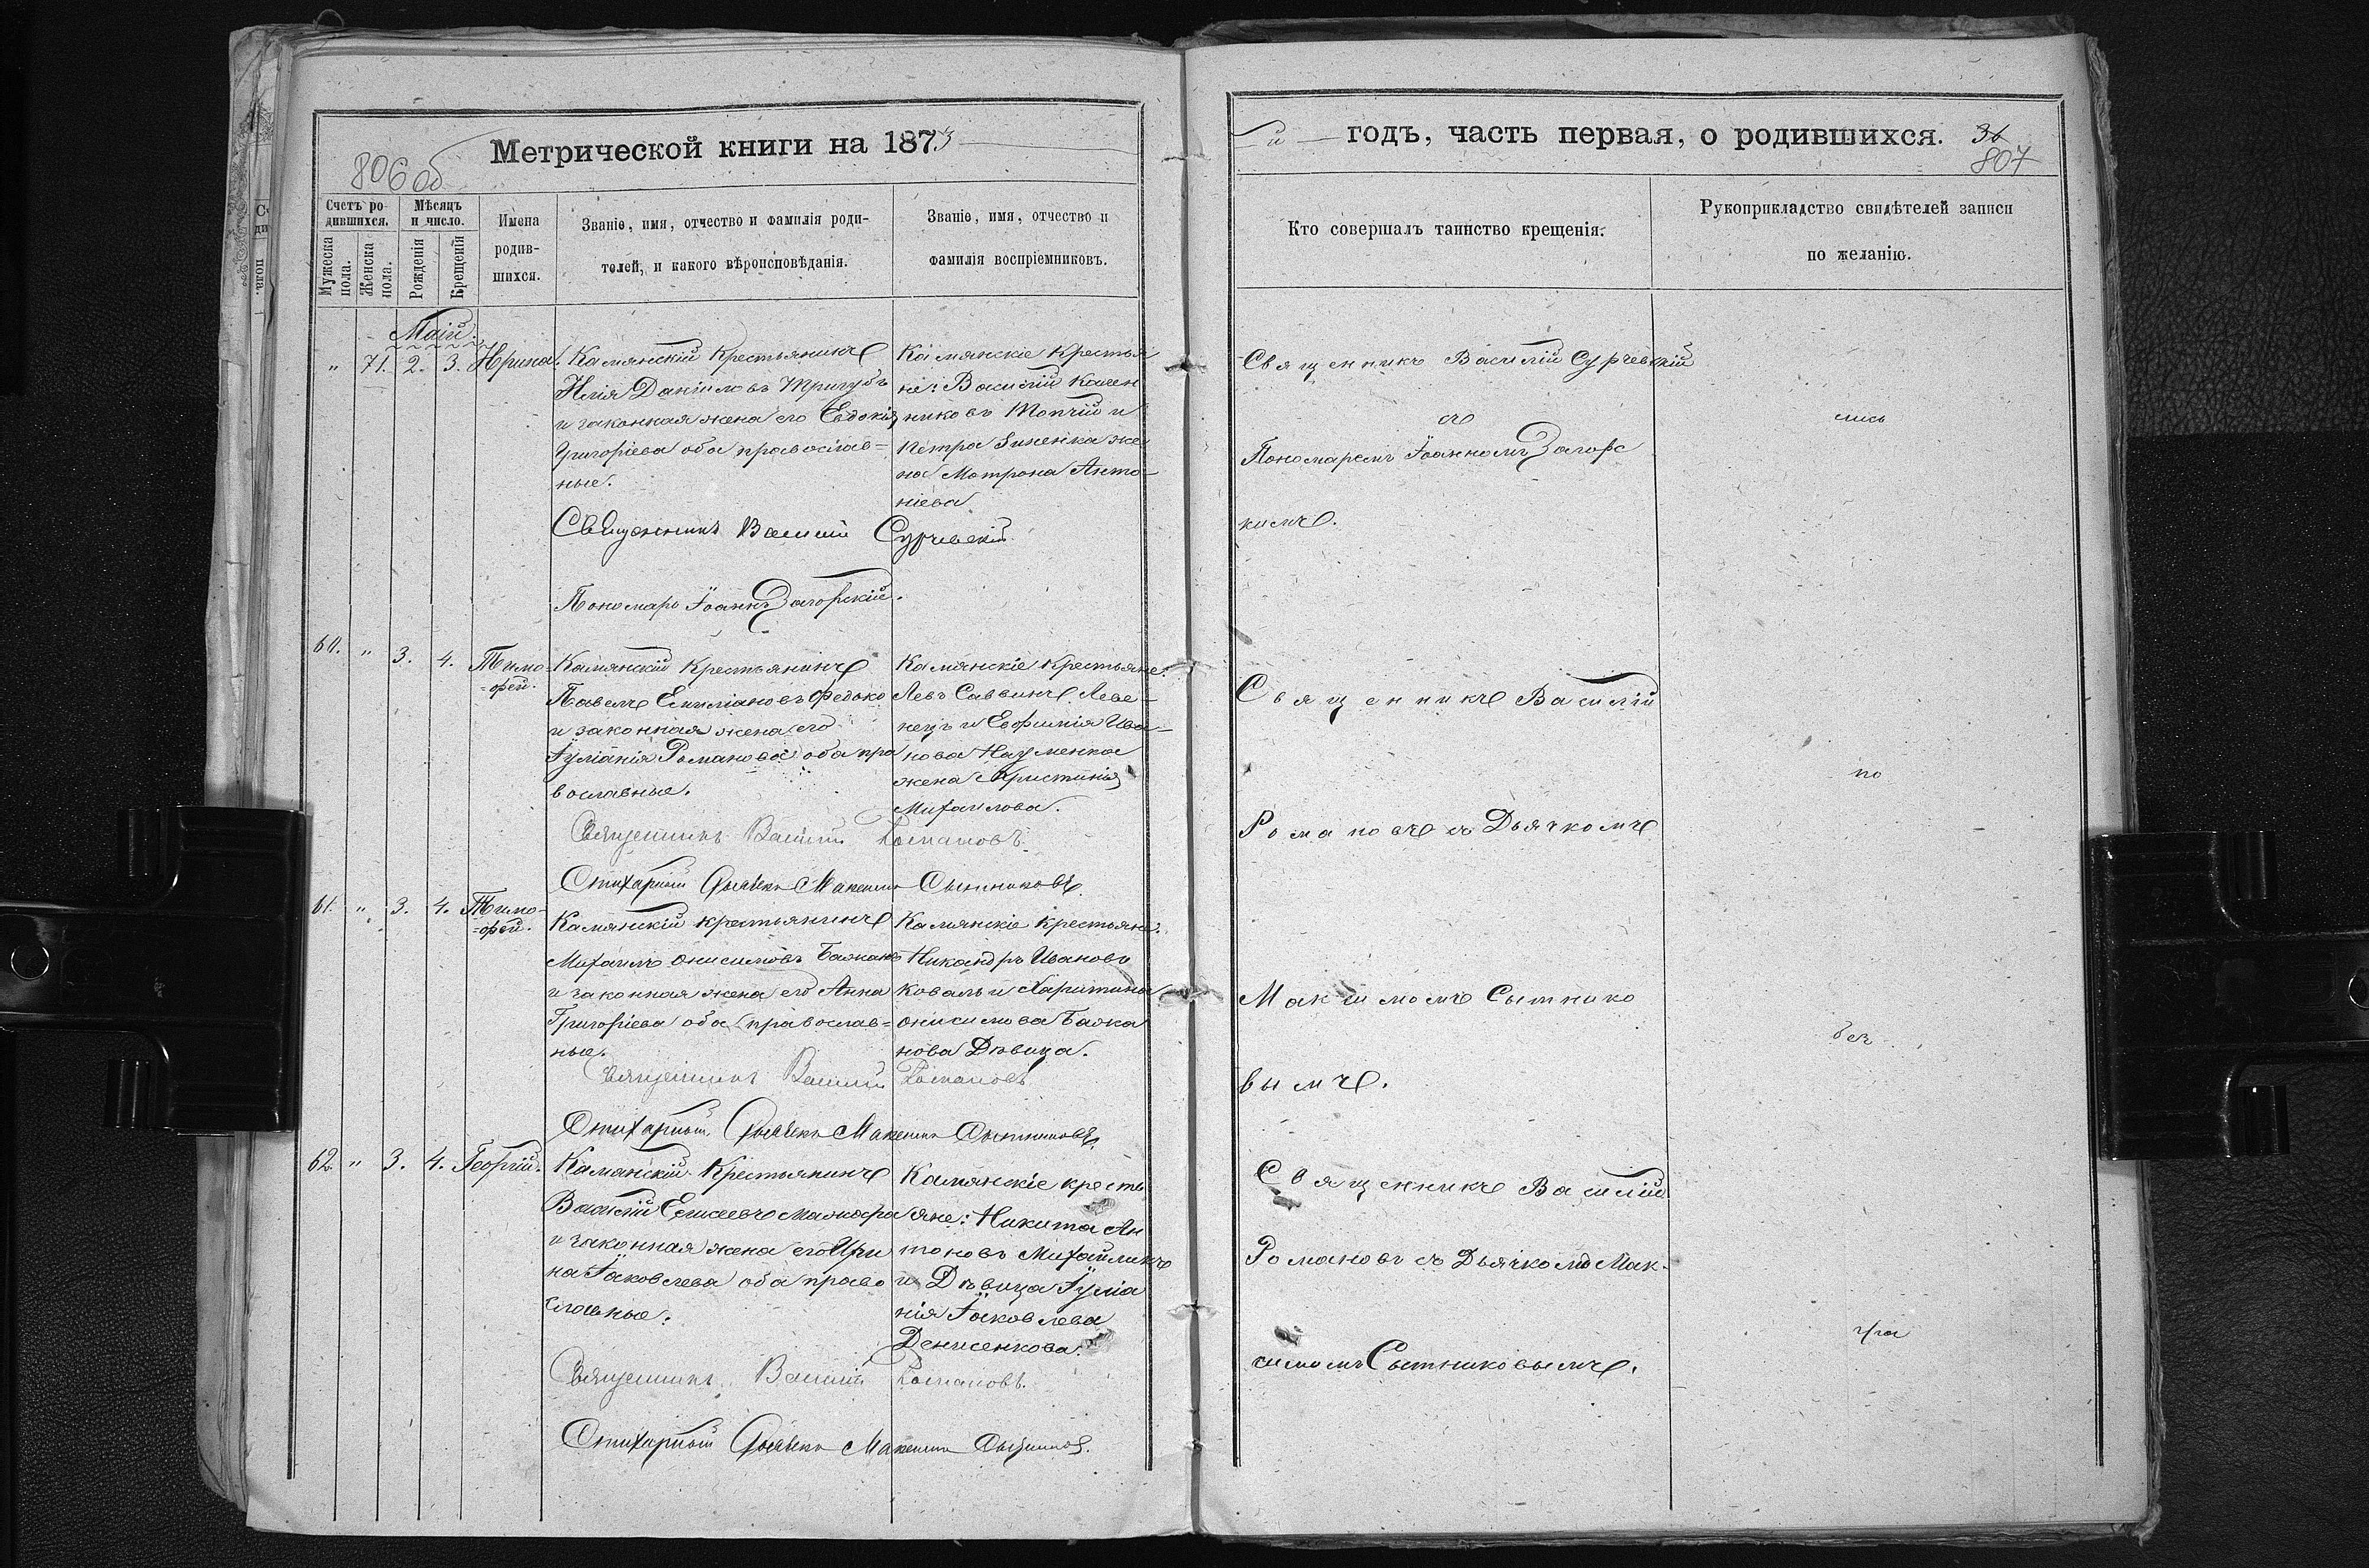 Метрической книги на 1873
806 об
Счетъ ро-
дившихся.
Мужеска
пола.
Женска
пола.
Мѣсяцъ
и число.
Рожденія
Крещенія
Имена
родив-
шихся.
Званіе, имя, отчество и фамилія роди-
телей, и какого вѣроисповѣданія.
Званіе, имя, отчество и
фамилія воспріемниковъ.
Маій.
" 71. 2. 3. Ирина.
Камянскій Крестьянинъ
Илія Даніиловъ Тригубъ
и законная жена его Евдокія
Григоріева оба православ=
ные.
Камянскіе Крестья
не: Василій Калин
никовъ Топчій и
Петра Зиненка же
на Матрона Анто
ніева
Священникъ Василій Сурчевскій
Пономарь Іоаннъ Загорскій.
60. " 3. 4. Тимо-
=фей.
Камянскій Крестьянинъ
Павелъ Емиліановъ Федоко
и законная жена его
Іуліанія Романова оба пра
вославные.
Камянскіе Крестьяне:
Левъ Саввинъ Леве-
нецъ и Евфимія Ива-
нова Науменкое
жена Христинія
Михаилова.
Священникъ Василій Романовъ
Стихарный Дьячекъ Максимъ Сытниковъ
61. " 3. 4. Тимо-
=фей.
Камянскій крестьянинъ
Михаилъ Онисимовъ Бажанъ
и законная жена его Анна
Григоріева оба православ=
ные.
Камянскіе крестьяне:
Никандръ Ивановъ
Коваль и Харитина
Онисимова Бажа
нова Дѣвица.
Священникъ Василій Романовъ
Стихарный Дьячекъ Максимъ Сытниковъ
62. " 3. 4. Георгій.
Камянскій Крестьянинъ
Василій Елисеевъ Мажара
и законная жена его Ири
на Іаковлева оба право
славные.
Камянскіе кресть
яне: Никита Ан
тоновъ Михайликъ
и Дѣвица Іуліа
нія Іаковлева
Денисенкова.
Священникъ Василій Романовъ.
Стихарный Дьячекъ Максимъ Сытниковъ.
й — годъ, часть первая, о родившихся. 31
807
Кто совершалъ таинство крещенія.
Рукоприкладство свидѣтелей записи
по желанію.
Священникъ Василій Сурчевскій
съ
Пономаремъ Іоанномъ Загорс
кимъ.
Священникъ Василій
Романовъ съ Дьячкомъ
Максимомъ Сытнико
вымъ.
Священникъ Василій
Романовъ съ Дьячкомъ Мак-
симомъ Сытниковымъ.
по